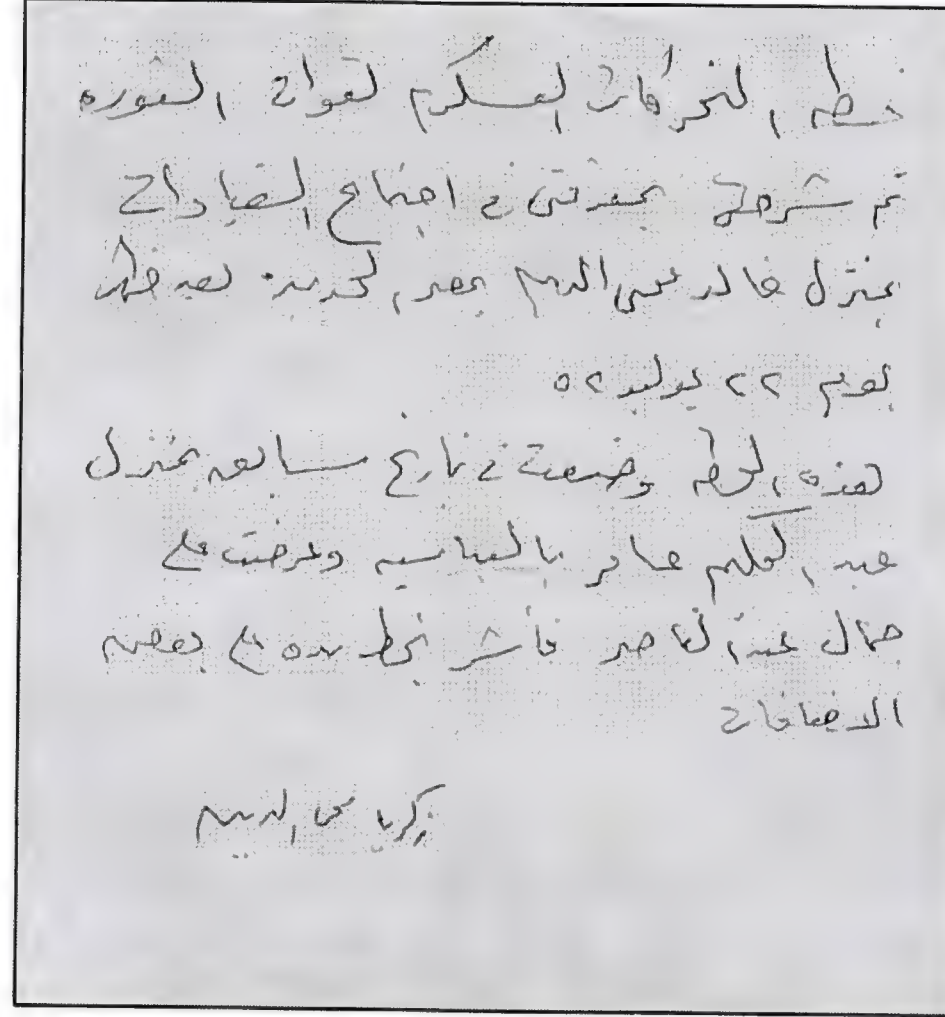 خطه التحركات العسكريه لقوات الثوره
تم شرحها بمعرفتى فى اجتماع القيادات
بمنزل خالد محى الدين بمصر الجديده بعد ظهر
يوم ٢٢ يوليو ٥٢
هذه الخطه وضعت فى تاريخ سابق بمنزل
عبد الحكيم عامر بالعباسيه وعرضت على
جمال عبد الناصر فأشر بخط يده على بعض
الاضافات
زكريا محى الدين